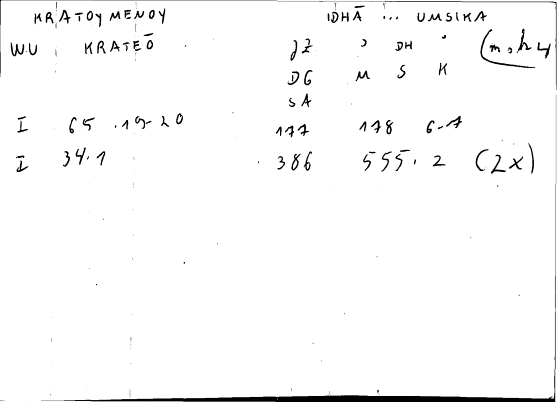 KRATOYMENOY IDHĀ ... UMSIKA
WU KRATEŌ JZ ' DH '
DG M S K
SA
I 65 .19-20 177 178 6-7
I 34.1 386 555.2 (2x)